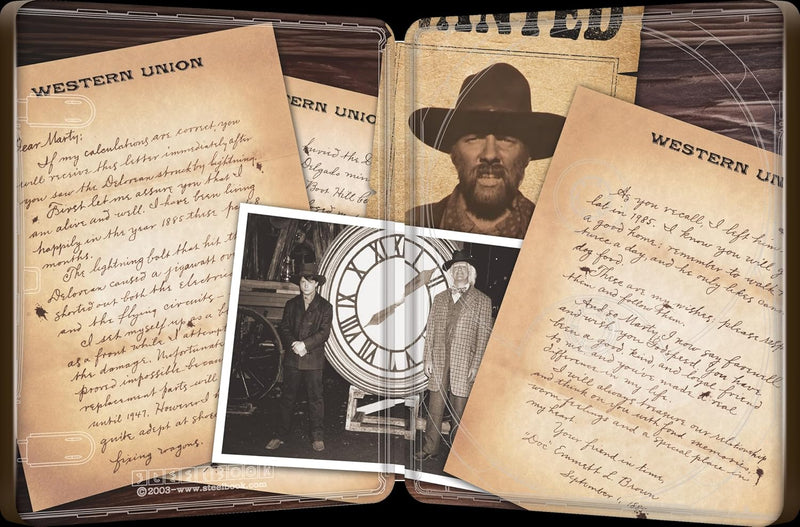 WANTED
WESTERN UNION
Dear Marty;
If my calculations are correct, you
will receive this letter immediately after
you saw the Delorean struck by lightning.
First let me assure you that I
am alive and well. I have been living
happily in the year 1885 these past 8
months.
The lightning bolt that hit the
Delorean caused a jigawatt
shorted out both the
and the flying circuits
I set myself up as a
as a front while I attempt
the damage. Unfortunate
proved impossible because
replacement parts will
until 1947. However I
quite adept at shoe
fixing wagons.
WESTERN UNION
buried the
Delgado
Boot Hill
WESTERN UN
As you recall, I left him
lat in 1985. I know you will
a good home; remember to walk
twice a day, and he only likes
dog food.
These are my wishes, please resp
them and follow them.
And so Marty, I now say farewell
and wish you Godspeed. You have
been a good, kind, and loyal friend
to me and you've made a real
difference in my life.
I will always treasure our relationship
and think on you with fond memories,
warm feelings and a special place in
my heart.
Your friend in time,
"Doc" Emmett L. Brown
September 1,
XII
I
II
III
IIII
V
VI
VII
VIII
IX
X
XI
STEELBOOK
©2003-www.steelbook.com